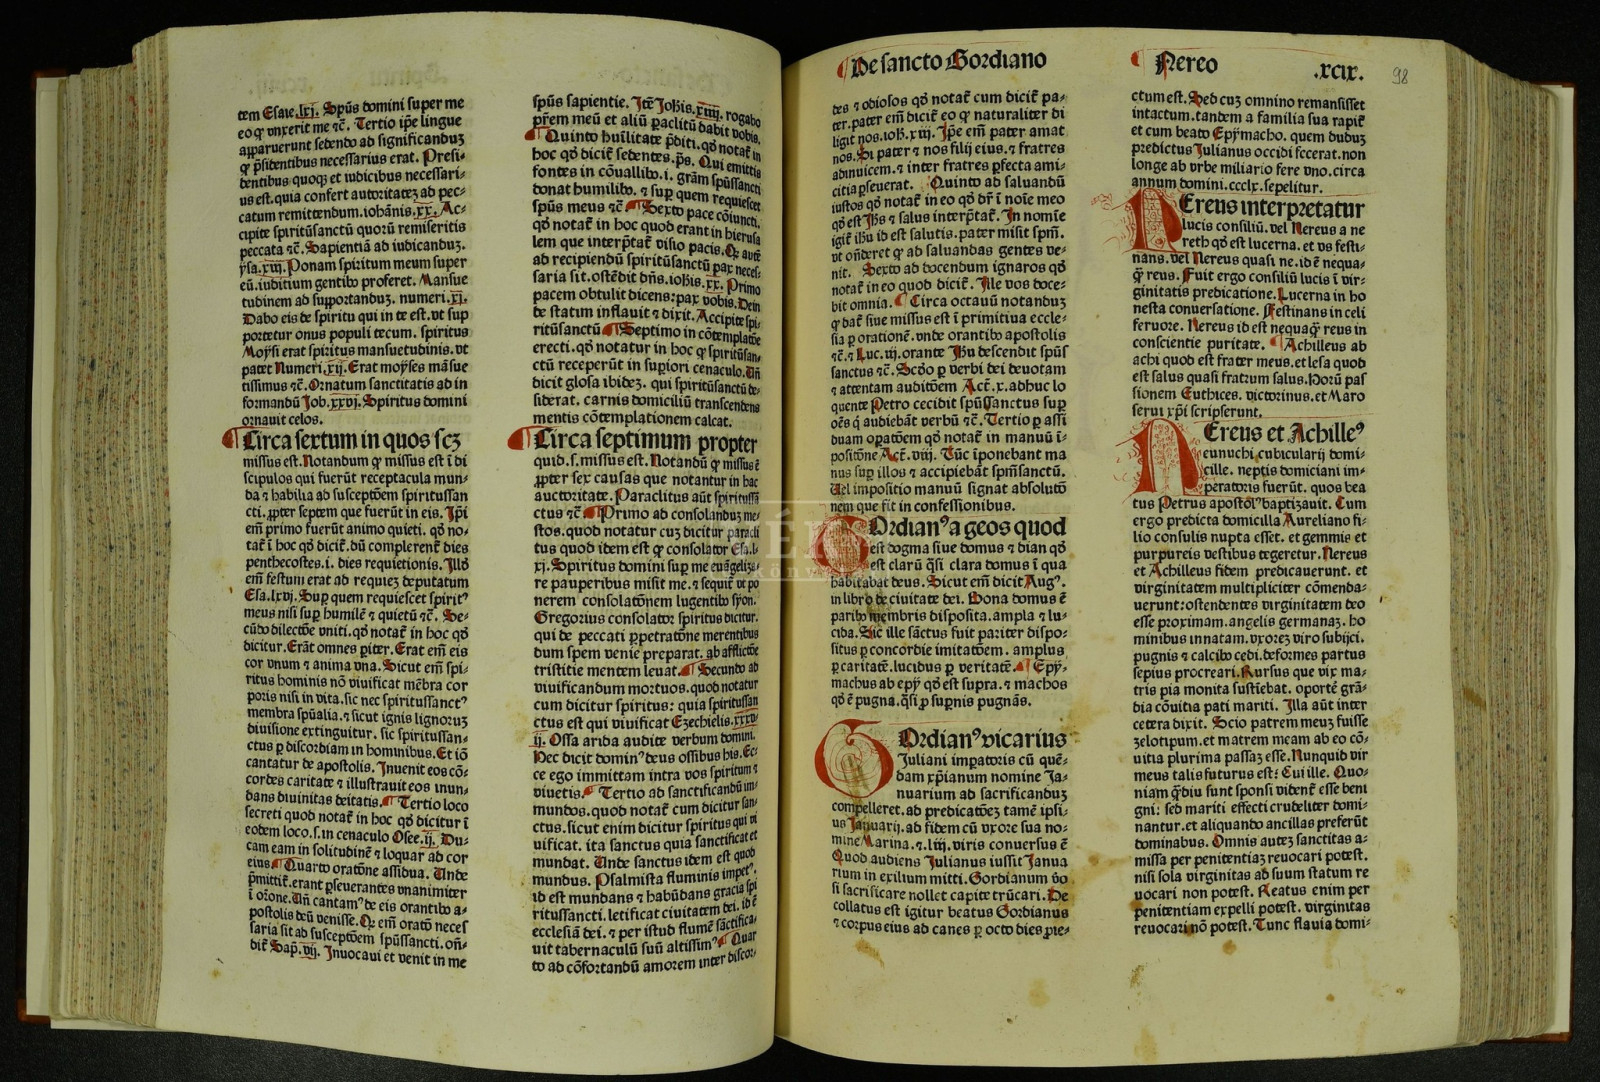 tem Esaie.lxj. Spūs domini super me
eo ꝙ vnxerit me ⁊c̄. Tertio ip̄e lingue
apparuerunt sedendo ad significanduꝫ
ꝙ p̄sidentibus necessarius erat. Presi⸗
dentibus quoqꝫ et iudicibus necessari⸗
us est. quia confert autoritateꝫ ad pec⸗
catum remittendum. iohānis.xx. Ac⸗
cipite spiritūsanctū quorū remiseritis
peccata ⁊c̄. Sapientiā ad iudicanduꝫ.
Ponam spiritum meum super
eū. iuditium gentibꝰ proferet. Mansue
tudinem ad supportanduꝫ. numeri.xj.
Dabo eis de spiritu qui in te est. vt sup
portetur onus populi tecum. spiritus
Moysi erat spiritus mansuetudinis. vt
patet Numeri.xij. Erat moyses māsue
tissimus ⁊c̄. Ornatum sanctitatis ad in
formandū Job.xxvj. Spiritus domini
ornauit celos.
Circa sextum in quos scꝫ
missus est. Notandum ꝙ missus est ī di
scipulos qui fuerūt receptacula mun⸗
da ⁊ habilia ad susceptōem spiritussan
cti. ꝓpter septem que fuerūt in eis. Ip̄i
em̄ primo fuerūt animo quieti. qd̄ no⸗
tat̄ ī hoc qd̄ dicit̄. dū complerent̄ dies
penthecostes. i. dies requietionis. Illd̄
em̄ festum erat ad requieꝫ deputatum
Esa.lxvj. Suꝑ quem requiescet spiritꝰ
meus nisi suꝑ humilē ⁊ quietū ⁊c̄. Se⸗
cūdo dilectōe vniti. qd̄ notat̄ in hoc qd̄
dicitur. Erāt omnes ꝑiter. Erat em̄ eis
cor vnum ⁊ anima vna. Sicut em̄ spi⸗
ritus hominis nō viuificat mēbra cor
poris nisi in vita. sic nec spiritussanctꝰ
membra spūalia. ⁊ sicut ignis lignoruꝫ
diuisione extinguitur. sic spiritussan⸗
ctus ꝑ discordiam in hominibus. Et iō
cantatur de apostolis. Inuenit eos cō⸗
cordes caritate ⁊ illustrauit eos inun⸗
dans diuinitas deitatis. Tertio loco
secreti quod notat̄ in hoc qd̄ dicitur ī
eodem loco. s. in cenaculo Osee.ij. Du⸗
cam eam in solitudinē ⁊ loquar ad cor
eius Quarto oratōne assidua. Unde
p̄mittit̄. erant ꝑseuerantes vnanimiter
ī orōne. Uñ cantamꝰ de eis orantibꝰ a⸗
postolis deū venisse. Ꝙ em̄ oratō neces
saria sit ad susceptōem spūssancti. on̄⸗
dit̄ Sap.vij. Inuocaui et venit in me
spūs sapientie. Itē Joh̄is.xiiij. rogabo
pr̄em meū et aliū ꝑaclitū dabit vobis.
Quinto hūilitate p̄diti. qd̄ notat̄ in
hoc qd̄ dicit̄ sedentes. ps̄. Qui emittis
fontes in cōuallibꝰ. i. grām spūssancti
donat humilibꝰ. ⁊ suꝑ quem requiescet
spūs meus ⁊c̄ Sexto pace cōiuncti.
qd̄ notat̄ in hoc quod erant in hierusa
lem que interp̄tat̄ visio pacis. Ꝙ autē
ad recipiendū spiritūsanctū pax neces⸗
saria sit. ostēdit dn̄s. ioh̄is.xx. Primo
pacem obtulit dicens: pax vobis. Dein
de statim inflauit ⁊ dixit. Accipite spi⸗
ritūsanctū Septimo in cōtemplatōe
erecti. qd̄ notatur in hoc ꝙ spiritūsan⸗
ctū receperūt in suꝑiori cenaculo. Uñ
dicit glosa ibideꝫ. qui spiritūsanctū de⸗
siderat. carnis domiciliū transcendens
mentis cōtemplationem calcat.
Circa septimum propter
quid. s. missus est. Notandū ꝙ missus ē
ꝓpter sex causas que notantur in hac
auctoritate. Paraclitus aūt spiritussā
ctus ⁊c̄ Primo ad consolanduꝫ me⸗
stos. quod notatur cuꝫ dicitur paracli
tus quod idem est ꝙ consolator Esa.l⸗
xj. Spiritus domini suꝑ me euāgeliza⸗
re pauperibus misit me. ⁊ sequit̄ vt po
nerem consolatōnem lugentibꝰ syon.
Gregorius consolator spiritus dicitur.
qui de peccati ꝑpetratōne merentibus
dum spem venie preparat. ab afflictōe
tristitie mentem leuat. Secundo ad
viuificandum mortuos. quod notatur
cum dicitur spiritus: quia spiritussan
ctus est qui viuificat Ezechielis.xxxv⸗
ij. Ossa arida audite verbum domini.
Hec dicit dominꝰ deus ossibus his. Ec⸗
ce ego immittam intra vos spiritum ⁊
viuetis. Tertio ad sanctificandū im⸗
mundos. quod notat̄ cum dicitur san⸗
ctus. sicut enim dicitur spiritus qui vi
uificat. ita sanctus quia sanctificat et
mundat. Unde sanctus idem est quod
mundus. Psalmista fluminis impetꝰ.
id est mundans ⁊ habūdans gracia spi
ritussancti. letificat ciuitatem dei. id ē
ecclesiā dei. ⁊ per istud flumē sāctifica⸗
uit tabernaculū suū altissimꝰ Quar
to ad cōfortandū amorem inter discor⸗
De sancto Gordiano
Nereo
.xcix.
98
des ⁊ odiosos qd̄ notat̄ cum dicit̄ pa⸗
ter. pater em̄ dicit̄ eo ꝙ naturaliter di
ligit nos. ioh̄.xiiij. Ip̄e em̄ pater amat
nos. Si pater ⁊ nos filij eius. ⁊ fratres
adinuicem. ⁊ inter fratres ꝑfecta ami⸗
citia ꝑseuerat. Quinto ad saluandū
iustos qd̄ notat̄ in eo qd̄ dr̄ ī noīe meo
qd̄ est Jh̄s ⁊ salus interp̄tat̄. In nomīe
igit̄ ih̄u id est salutis. pater misit spm̄.
vt on̄deret ꝙ ad saluandas gentes ve⸗
nit. Sexto ad docendum ignaros qd̄
notat̄ in eo quod dicit̄. Ille vos doce⸗
bit omnia. Circa octauū notanduꝫ
ꝙ dat̄ siue missus est ī primitiua eccle⸗
sia ꝑ orationē. vnde orantibꝰ apostolis
⁊c̄. ⁊ Luc.iij. orante Jh̄u descendit spūs
sanctus ⁊c̄. Scd̄o ꝑ verbi dei deuotam
⁊ attentam auditōem Act̄.x. adhuc lo
quente Petro cecidit spūssanctus suꝑ
oēs ꝙ audiebāt verbū ⁊c̄. Tertio ꝑ assi
duam oꝑatōem qd̄ notat̄ in manuū ī⸗
positōne Act̄.viij. Tūc īponebant ma
nus suꝑ illos ⁊ accipiebāt spm̄sanctū.
Uel impositio manuū signat absolutō
nem que fit in confessionibus.
Gordianꝰ a geos quod
est dogma siue domus ⁊ dian qd̄
est clarū qͣsi clara domus ī qua
habitabat deus. Sicut em̄ dicit Augꝰ.
in libro de ciuitate dei. Bona domus ē
paribꝰ membris disposita. ampla ⁊ lu⸗
cida. Sic ille sāctus fuit pariter dispo⸗
situs ꝑ concordie imitatōem. amplus
ꝑ caritatē. lucidus ꝑ veritatē. Epy⸗
machus ab epy qd̄ est supra. ⁊ machos
qd̄ ē pugna. qͣsi ꝑ suꝑnis pugnās.
Gordianꝰ vicarius
Juliani imꝑatoris cū quē⸗
dam xp̄ianum nomine Ja⸗
nuarium ad sacrificanduꝫ
compelleret. ad predicatōeꝫ tamē ipsi⸗
us Januarij. ad fidem cū vxore sua no⸗
mine Marina. ⁊ liij. viris conuersus ē
Quod audiens Julianus iussit Janua
rium in exilium mitti. Gordianum v̄o
si sacrificare nollet capite trūcari. De
collatus est igitur beatus Gordianus
⁊ corpus eius ad canes ꝑ octo dies ꝓie⸗
ctum est. Sed cuꝫ omnino remansisset
intactum. tandem a familia sua rapit̄
et cum beato Epymacho. quem duduꝫ
predictus Julianus occidi fecerat. non
longe ab vrbe miliario fere vno. circa
annum domini.ccclx. sepelitur.
Nereus interpretatur
lucis consiliū. vel Nereus a ne
reth qd̄ est lucerna. et vs festi⸗
nans. vel Nereus quasi ne. id ē nequa⸗
ꝙ̄ reus. Fuit ergo consiliū lucis ī vir⸗
ginitatis predicatione. Lucerna in ho
nesta conuersatione. Festinans in celi
feruore. Nereus id est nequaꝙ̄ reus in
conscientie puritate. Achilleus ab
achi quod est frater meus. et lesa quod
est salus quasi fratrum salus. Horū pas
sionem Euthices. victorinus. et Maro
serui xp̄i scripserunt.
Nereus et Achilleꝰ
eunuchi cubicularij domi⸗
cille. neptis domiciani im⸗
peratoris fuerūt. quos bea
tus Petrus apostolꝰ baptizauit. Cum
ergo predicta domicilla Aureliano fi⸗
lio consulis nupta esset. et gemmis et
purpureis vestibus tegeretur. Nereus
et Achilleus fidem predicauerunt. et
virginitatem multipliciter cōmenda⸗
uerunt: ostendentes virginitatem deo
esse proximam. angelis germanaꝫ. ho
minibus innatam. vxoreꝫ viro subijci.
pugnis ⁊ calcibꝰ cedi. deformes partus
sepius procreari. Rursus que vix ma⸗
tris pia monita sustiebat. oportē grā⸗
dia cōuitia pati mariti. Illa aūt inter
cetera dixit. Scio patrem meuꝫ fuisse
zelotipum. et matrem meam ab eo cō⸗
uitia plurima passaꝫ esse. Nunquid vir
meus talis futurus est: Cui ille. Quo⸗
niam qͣdiu sunt sponsi vident̄ esse beni
gni: sed mariti effecti crudeliter domi⸗
nantur. et aliquando ancillas preferūt
dominabus. Omnis auteꝫ sanctitas a⸗
missa per penitentiaꝫ reuocari potest.
nisi sola virginitas ad suum statum re
uocari non potest. Reatus enim per
penitentiam expelli potest. virginitas
reuocari nō potest. Tunc flauia domi⸗